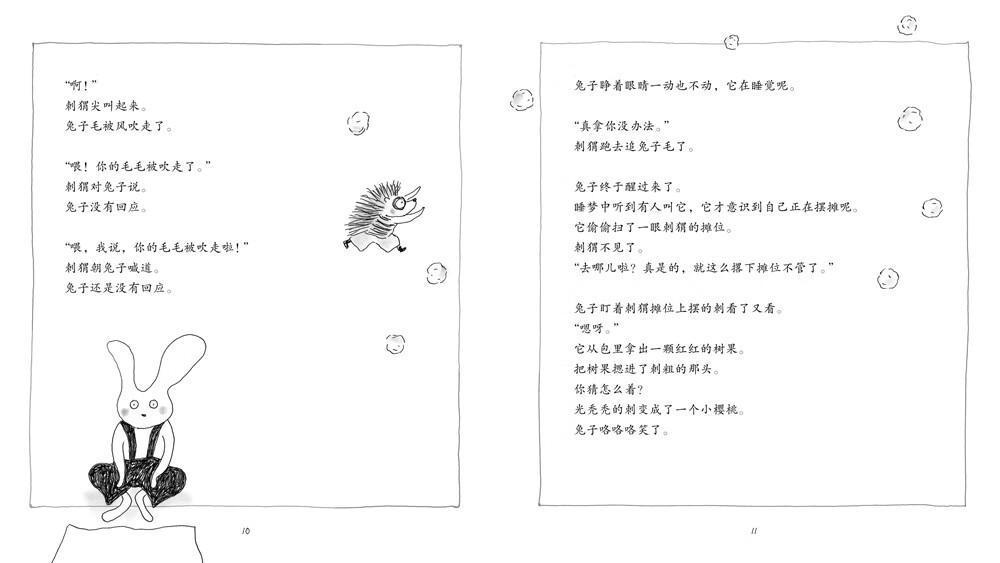 “啊！”
刺猬尖叫起来。
兔子毛被风吹走了。
“喂！你的毛毛被吹走了。”
刺猬对兔子说。
兔子没有回应。
“喂，我说，你的毛毛被吹走啦！”
刺猬朝兔子喊道。
兔子还是没有回应。
10
兔子睁着眼睛一动也不动，它在睡觉呢。
“真拿你没办法。”
刺猬跑去追兔子毛了。
兔子终于醒过来了。
睡梦中听到有人叫它，它才意识到自己正在摆摊呢。
它偷偷扫了一眼刺猬的摊位。
刺猬不见了。
“去哪儿啦？真是的，就这么撂下摊位不管了。”
兔子盯着刺猬摊位上摆的刺看了又看。
“嗯呀。”
它从包里拿出一颗红红的树果。
把树果摁进了刺粗的那头。
你猜怎么着？
光秃秃的刺变成了一个小樱桃。
兔子咯咯咯笑了。
11